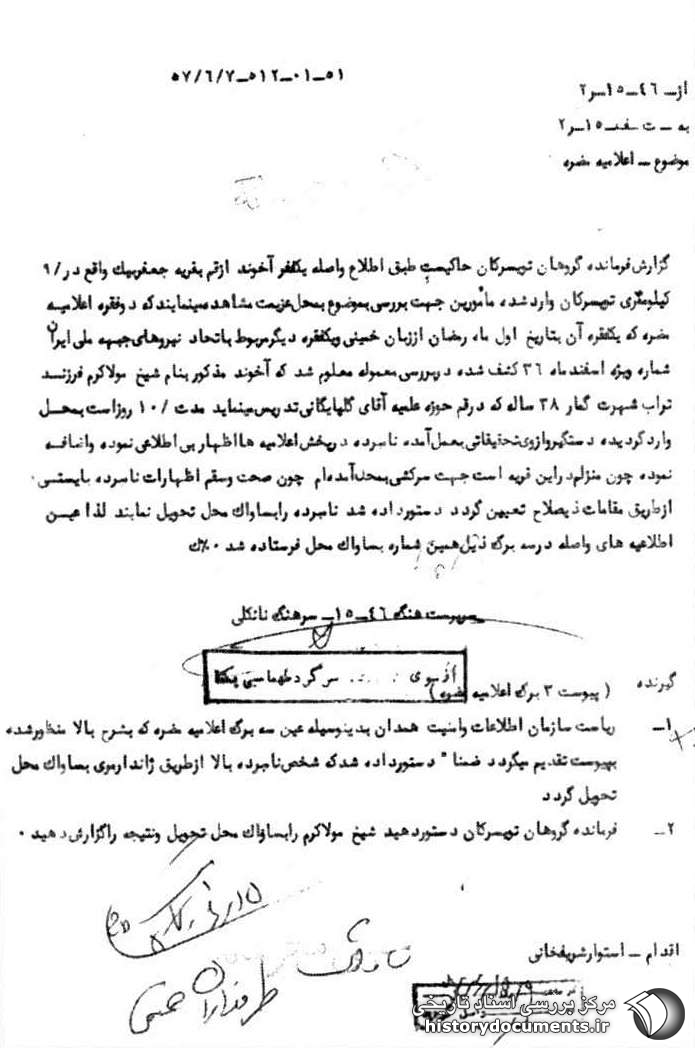 ۵۱-۰۱-۵۱۲-۵۷/۶/۷
از - ۴۶-۱۵-ر۲
به - ت سفد-۱۵-ر۲
موضوع - اعلامیه مضره
گزارش فرمانده گروهان تویسرکان حاکیست طبق اطلاع واصله یکنفر آخوند از قم بقریه جعفربیك واقع در /۹
کیلومتری تویسرکان وارد شده مأمورین جهت بررسی بموضوع بمحل عزیمت مشاهده مینمایند که دوفقره اعلامیه
مضره که یکفقره آن بتاریخ اول ماه رمضان از زبان خمینی ویکفقره دیگر مربوط باتحاد نیروهای جبهه ملی ایران
شماره ویژه اسفند ماه ۳۶ کشف شده در بررسی معموله معلوم شد که آخوند مذکور بنام شیخ مولاکرم فرزند
تراب شهرت گمار ۳۸ ساله که در قم حوزه علمیه آقای گلپایگانی تدریس مینماید مدت /۱۰ روز است بمحل
وارد گردیده دستگیر و از وی تحقیقاتی بعمل آمده نامبرده در پخش اعلامیه ها اظهار بی اطلاعی نموده واضافه
نموده چون منزلم در این قریه است جهت سرکشی بمحل آمده ام چون صحت وسقم اظهارات نامبرده بایستی
از طریق مقامات ذیصلاح تعیین گردد دستور داده شد نامبرده را بساواك محل تحویل نمایند لذا عین
اطلاعیه های واصله در سه برگ ذیل همین شماره بساواك محل فرستاده شد ۰
سرپرست هنگ ۴۶-۱۵- سرهنگ نانکلی
از سوی سرگرد طهماسبی یکتا
گیرنده
( پیوست ۳ برگ اعلامیه مضره )
۱- ریاست سازمان اطلاعات وامنیت همدان بدینوسیله عین سه برگ اعلامیه مضره که بشرح بالا منظور شده
بپیوست تقدیم میگردد ضمنا" دستور داده شد که شخص نامبرده بالا از طریق ژاندارمری بساواك محل
تحویل گردد
۲- فرمانده گروهان تویسرکان دستور دهید شیخ مولاکرم را بساواك محل تحویل ونتیجه را گزارش دهید ۰
طرفداران خمینی
اقدام - استوار شریفخانی
مرکز بررسی اسناد تاریخی
historydocuments.ir